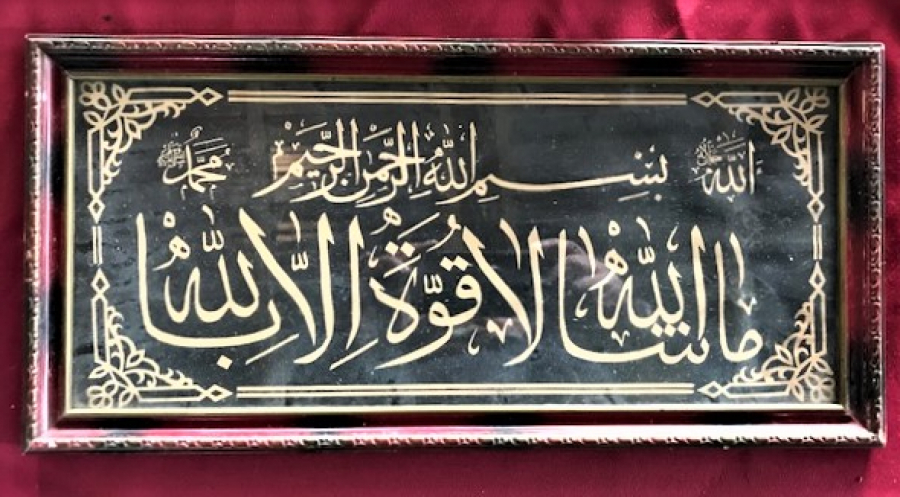 الله جل جلاله بسم الله الرحمن الرحيم محمد ﷺ
ما شاء الله لا قوة إلا بالله